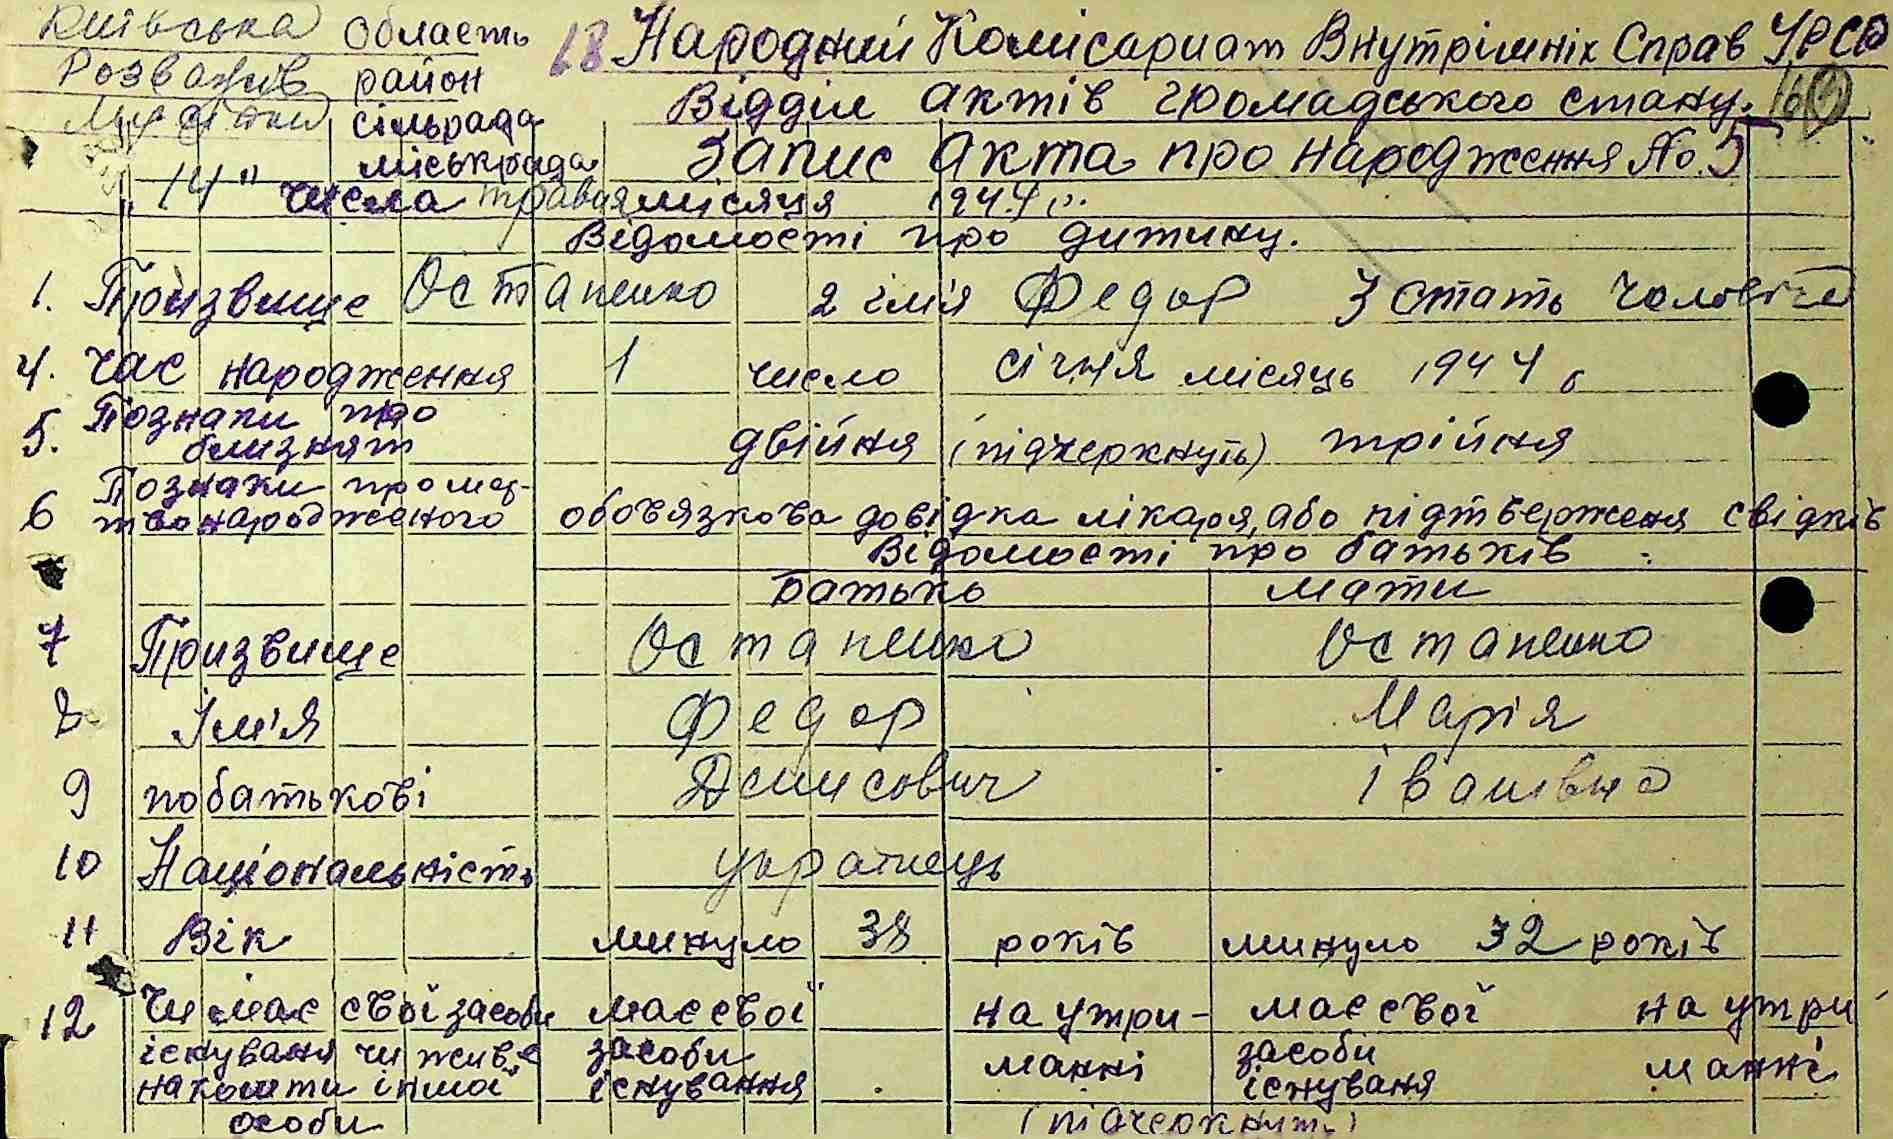 Київська область 68 Народний Комісариат Внутрішніх Справ УРСР
Розважів район Відділ актів громадського стану.
сільрада
міськрада Запис акта про народження No. 5
"14" числа травня місяця 1944 р.
Відомості про дитину.
1. Призвище Остапенко 2 ім'я Федор 3 стать чоловіча
4. час народження 1 число січня місяць 1944
5. Познаки про близнят двійня (підчеркнуть) трійня
6 Познаки про мер-
твонародженого обов'язкова довідка лікаря, або підтверження свідків
Відомості про батьків
Батько Мати
7 Призвище Остапенко Остапенко
8 Ім'я Федор Марія
9 побатькові Денисович Іванівна
10 Національність українець
11 Вік минуло 38 років минуло 32 років
12 Чи має свої засоби має свої на утри- має свої на утри
існуваня чи живе засоби манні засоби манні
на кошти іншої існування існуваня
особи (підчеркнуть)